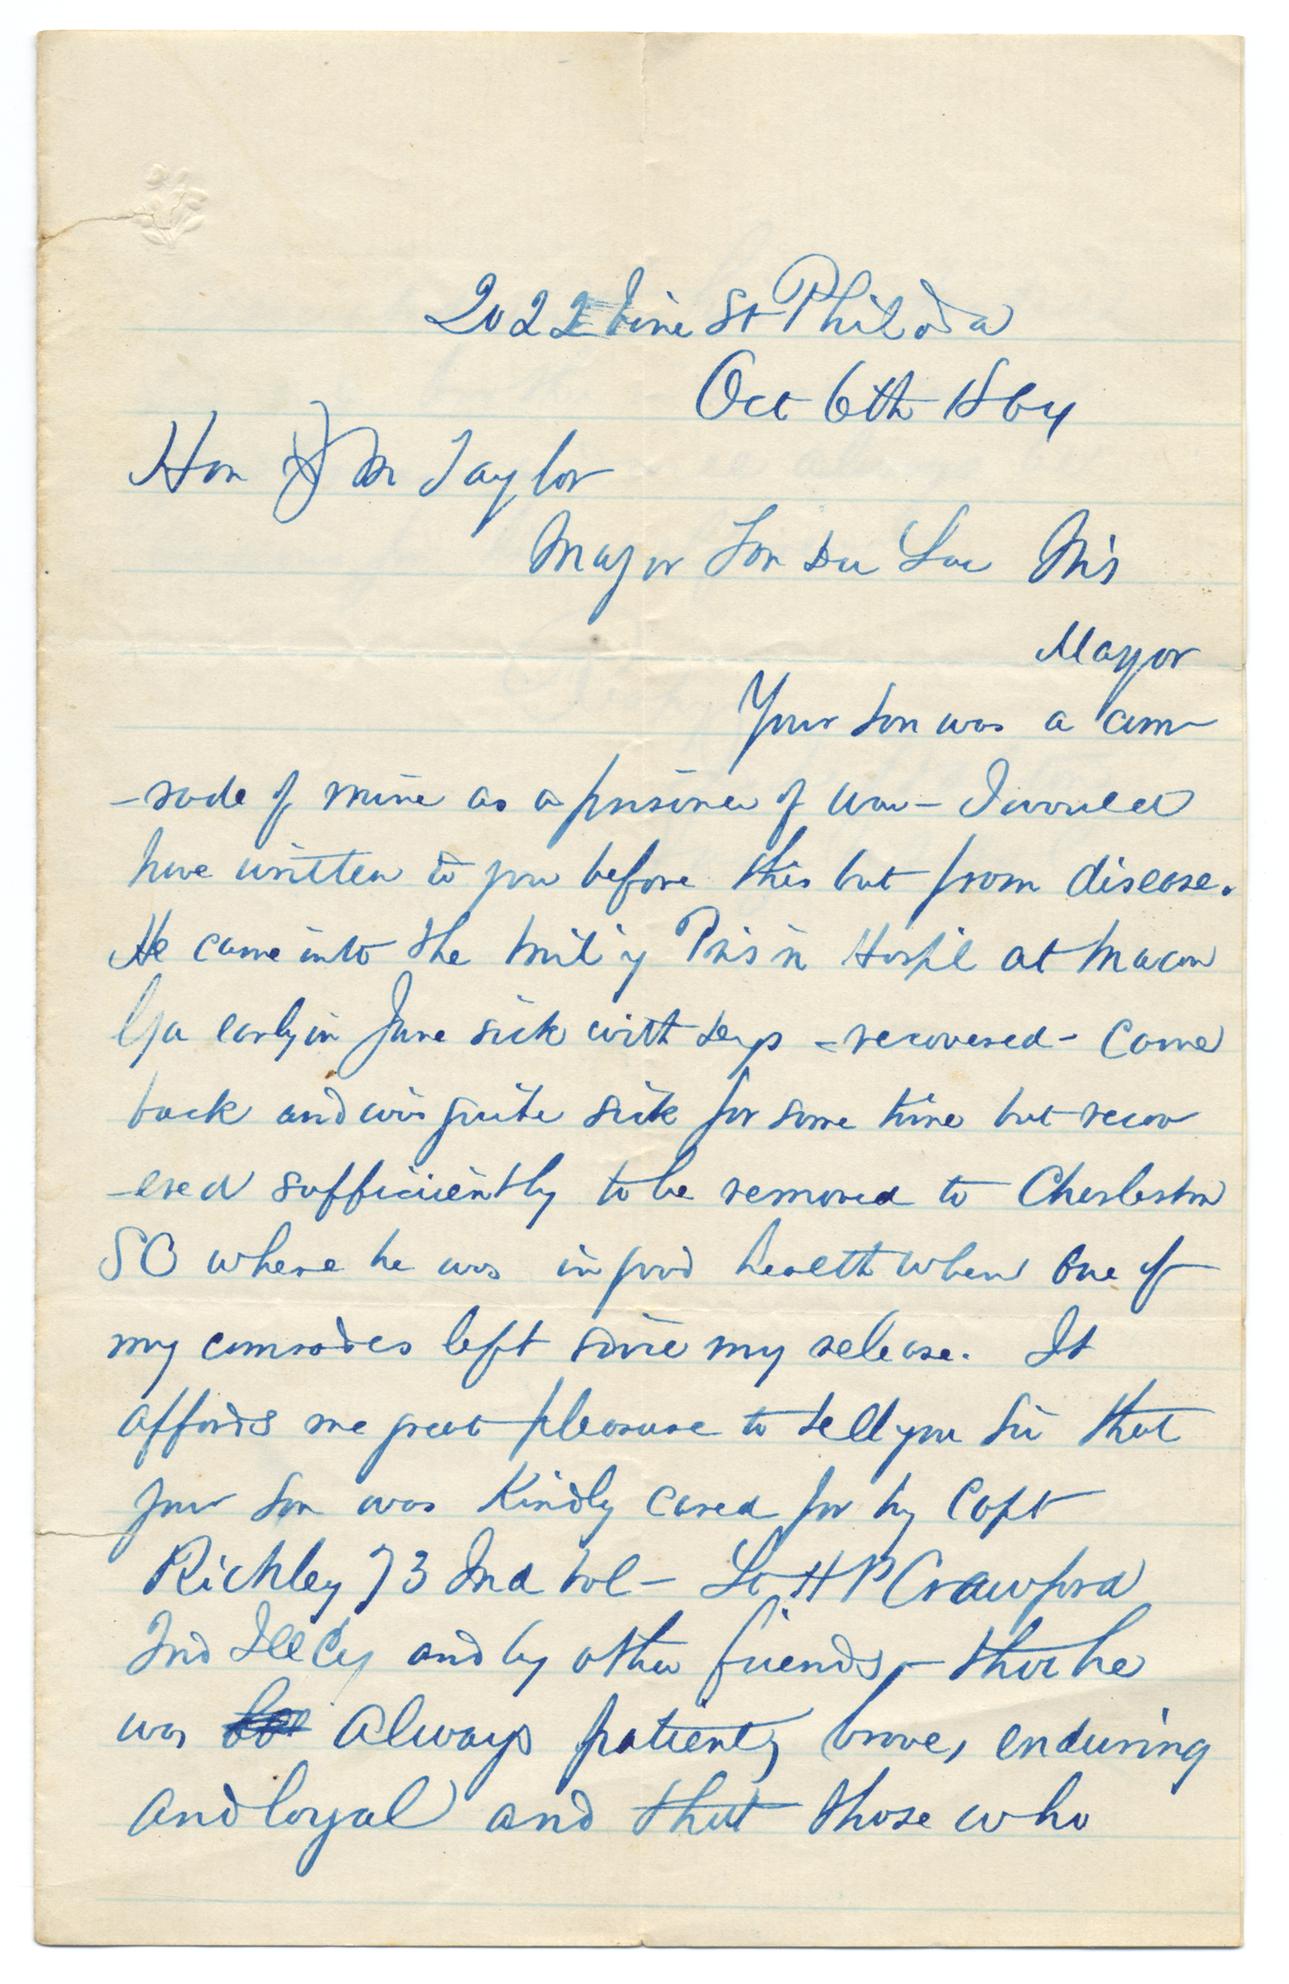 2022 Vine St Philada
Oct 6th 1864
Hon J M Taylor
Mayor Fon Du Lac Wis
Mayor
Your son was a com
-rade of mine as a prisoner of war - I would
have written to you before this but from disease.
He came into the Mil'y Pris'n Hosp'l at Macon
Ga early in June sick with - recovered - Came
back and was quite sick for some time but recov
-ered sufficiently to be removed to Charleston
SC where he was in good health when one of
my comrades left since my release. It
affords me great pleasure to tell you Sir that
your son was Kindly cared for by Capt
Richley 73 Ind Vol - Lt H P Crawford
2nd Ill Cy and by other friends, - that he
was always patient, brave, enduring
and loyal and that those who